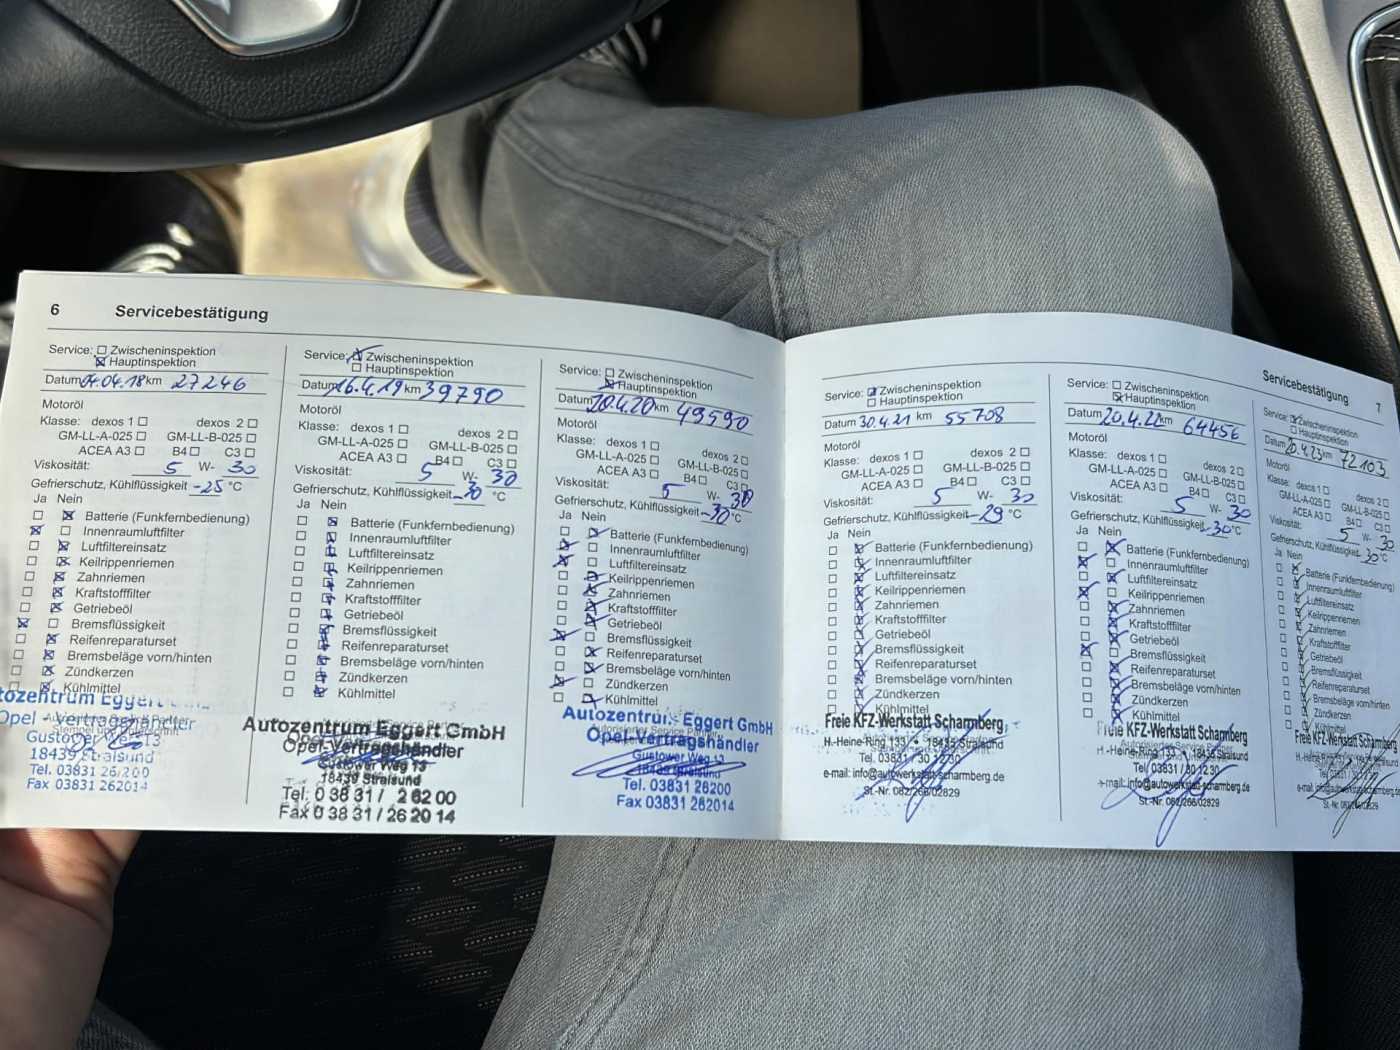 6 Servicebestätigung
Service: Zwischeninspektion
Hauptinspektion
Datum 04.04.18 km 27246
Motoröl
Klasse: dexos 1 dexos 2
GM-LL-A-025 GM-LL-B-025
ACEA A3 B4 C3
Viskosität: 5 W- 30
Gefrierschutz, Kühlflüssigkeit -25 °C
Ja Nein
Batterie (Funkfernbedienung)
Innenraumluftfilter
Luftfiltereinsatz
Keilrippenriemen
Zahnriemen
Kraftstofffilter
Getriebeöl
Bremsflüssigkeit
Reifenreparaturset
Bremsbeläge vorn/hinten
Zündkerzen
Kühlmittel
Autozentrum Eggert
Opel-Vertragshändler
Gustower
18439 Stralsund
Tel. 03831 26200
Fax 03831 262014
Service: Zwischeninspektion
Hauptinspektion
Datum 16.4.19 km 39790
Motoröl
Klasse: dexos 1 dexos 2
GM-LL-A-025 GM-LL-B-025
ACEA A3 B4 C3
Viskosität: 5 W- 30
Gefrierschutz, Kühlflüssigkeit -30 °C
Ja Nein
Batterie (Funkfernbedienung)
Innenraumluftfilter
Luftfiltereinsatz
Keilrippenriemen
Zahnriemen
Kraftstofffilter
Getriebeöl
Bremsflüssigkeit
Reifenreparaturset
Bremsbeläge vorn/hinten
Zündkerzen
Kühlmittel
Autozentrum Eggert GmbH
Opel-Vertragshändler
Gustower Weg 13
18439 Stralsund
Tel. 0 38 31 / 2 62 00
Fax 0 38 31 / 26 20 14
Service: Zwischeninspektion
Hauptinspektion
Datum 20.4.20 km 49590
Motoröl
Klasse: dexos 1 dexos 2
GM-LL-A-025 GM-LL-B-025
ACEA A3 B4 C3
Viskosität: 5 W- 30
Gefrierschutz, Kühlflüssigkeit -30 °C
Ja Nein
Batterie (Funkfernbedienung)
Innenraumluftfilter
Luftfiltereinsatz
Keilrippenriemen
Zahnriemen
Kraftstofffilter
Getriebeöl
Bremsflüssigkeit
Reifenreparaturset
Bremsbeläge vorn/hinten
Zündkerzen
Kühlmittel
Autozentrum Eggert GmbH
Opel-Vertragshändler
Gustower Weg 13
18439 Stralsund
Tel. 03831 26200
Fax 03831 262014
Servicebestätigung 7
Service: Zwischeninspektion
Hauptinspektion
Datum 30.4.21 km 55708
Motoröl
Klasse: dexos 1 dexos 2
GM-LL-A-025 GM-LL-B-025
ACEA A3 B4 C3
Viskosität: 5 W- 30
Gefrierschutz, Kühlflüssigkeit -29 °C
Ja Nein
Batterie (Funkfernbedienung)
Innenraumluftfilter
Luftfiltereinsatz
Keilrippenriemen
Zahnriemen
Kraftstofffilter
Getriebeöl
Bremsflüssigkeit
Reifenreparaturset
Bremsbeläge vorn/hinten
Zündkerzen
Kühlmittel
Freie KFZ-Werkstatt Scharmberg
H.-Heine-Ring 133 • 18435 Stralsund
Tel. 03831 / 30 12 30
e-mail: info@autowerkstatt-scharmberg.de
St.-Nr. 082/266/02829
Service: Zwischeninspektion
Hauptinspektion
Datum 20.4.22 km 64456
Motoröl
Klasse: dexos 1 dexos 2
GM-LL-A-025 GM-LL-B-025
ACEA A3 B4 C3
Viskosität: 5 W- 30
Gefrierschutz, Kühlflüssigkeit -30 °C
Ja Nein
Batterie (Funkfernbedienung)
Innenraumluftfilter
Luftfiltereinsatz
Keilrippenriemen
Zahnriemen
Kraftstofffilter
Getriebeöl
Bremsflüssigkeit
Reifenreparaturset
Bremsbeläge vorn/hinten
Zündkerzen
Kühlmittel
Freie KFZ-Werkstatt Scharmberg
H.-Heine-Ring 133 • 18435 Stralsund
Tel. 03831 / 30 12 30
e-mail: info@autowerkstatt-scharmberg.de
St.-Nr. 082/266/02829
Service: Zwischeninspektion
Hauptinspektion
Datum 20.4.23 km 72103
Motoröl
Klasse: dexos 1 dexos 2
GM-LL-A-025 GM-LL-B-025
ACEA A3 B4 C3
Viskosität: 5 W- 30
Gefrierschutz, Kühlflüssigkeit -30 °C
Ja Nein
Batterie (Funkfernbedienung)
Innenraumluftfilter
Luftfiltereinsatz
Keilrippenriemen
Zahnriemen
Kraftstofffilter
Getriebeöl
Bremsflüssigkeit
Reifenreparaturset
Bremsbeläge vorn/hinten
Zündkerzen
Kühlmittel
Freie KFZ-Werkstatt Scharmberg
H.-Heine-Ring 133 • 18435 Stralsund
St.-Nr. 082/266/02829